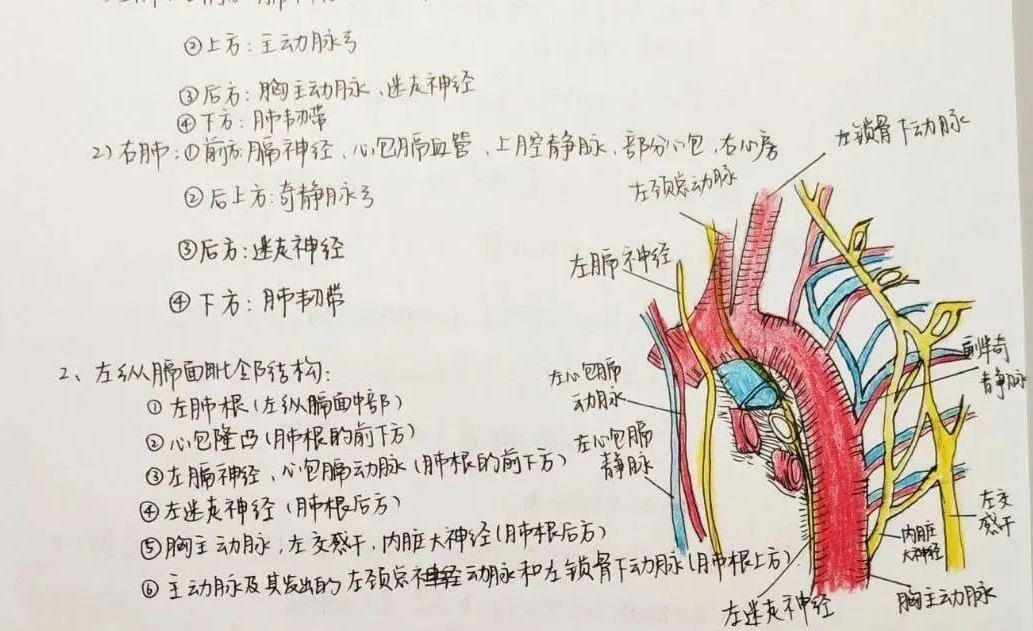 ②上方：主动脉弓
③后方：胸主动脉、迷走神经
④下方：肺韧带
2）右肺：①前方：膈神经、心包膈血管、上腔静脉、部分心包、右心房
②后上方：奇静脉弓
③后方：迷走神经
④下方：肺韧带
2、左纵膈面毗邻结构：
①左肺根（左纵膈面中部）
②心包隆凸（肺根的前下方）
③左膈神经、心包膈动脉（肺根的前下方）
④左迷走神经（肺根后方）
⑤胸主动脉，左交感干，内脏大神经（肺根后方）
⑥主动脉及其发出的左颈总动脉和左锁骨下动脉（肺根上方）
左锁骨下动脉
左颈总动脉
左膈神经
左心包膈
动脉
左心包膈
静脉
副半奇
静脉
左交
感干
内脏
大神经
左迷走神经
胸主动脉